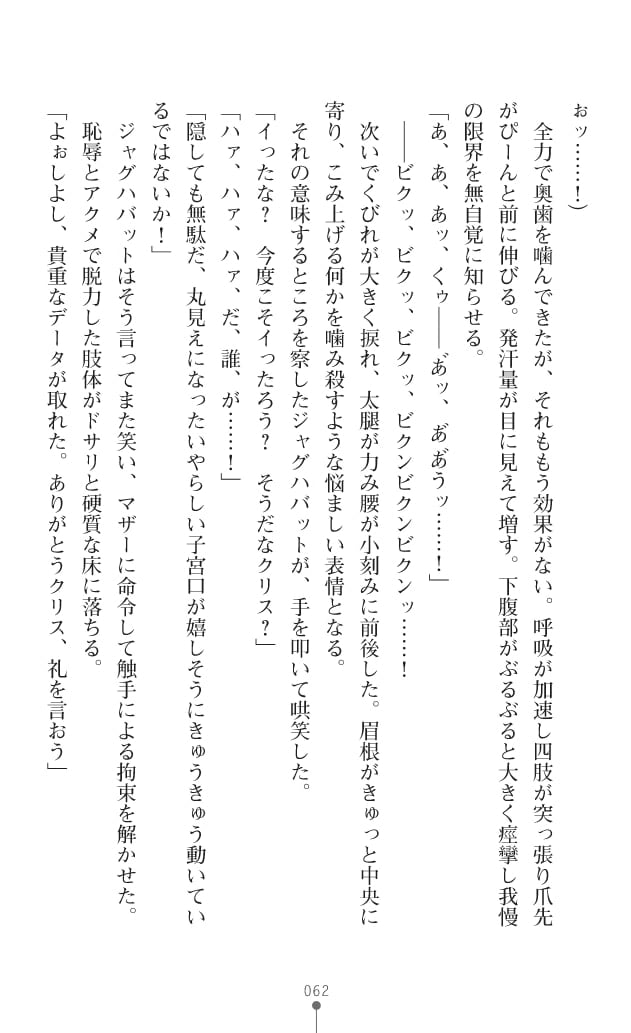 おッ……！）
　全力で奥歯を噛んできたが、それももう効果がない。呼吸が加速し四肢が突っ張り爪先
がぴーんと前に伸びる。発汗量が目に見えて増す。下腹部がぶるぶると大きく痙攣し我慢
の限界を無自覚に知らせる。
「あ、あ、あッ、くぅ――あ゛ッ、あ゛あ゛うッ……！」
　――ビクッ、ビクッ、ビクッ、ビクンビクンビクンッ……！
　次いでくびれが大きく捩れ、太腿が力み腰が小刻みに前後した。眉根がきゅっと中央に
寄り、こみ上げる何かを噛み殺すような悩ましい表情となる。
　それの意味するところを察したジャグハバットが、手を叩いて哄笑した。
「イったな？　今度こそイったろう？　そうだなクリス？」
「ハァ、ハァ、ハァ、だ、誰、が……！」
「隠しても無駄だ、丸見えになったいやらしい子宮口が嬉しそうにきゅうきゅう動いてい
るではないか！」
　ジャグハバットはそう言ってまた笑い、マザーに命令して触手による拘束を解かせた。
　恥辱とアクメで脱力した肢体がドサリと硬質な床に落ちる。
「よぉしよし、貴重なデータが取れた。ありがとうクリス、礼を言おう」
062